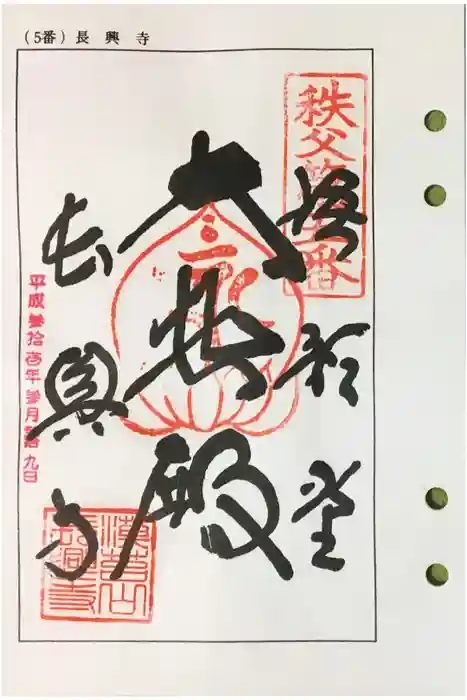 (5番) 長興寺
秩父第五番
大悲殿
長興寺
平成参拾壱年参月
九日
長興寺